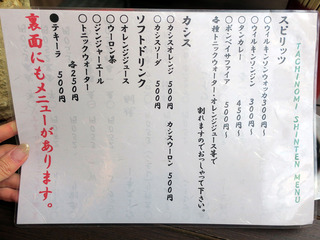 TACHINOMI SHINTEN MENU
スピリッツ
○ウィルキンソンウォッカ300円～
○ウィルキンソンジン 300円～
○タンカレー 450円～
○ボンベイサファイア 500円～
各種トニックウォーター・オレンジジュース等で
割れますのでおっしゃって下さい。
カシス
○カシスオレンジ 500円 カシスウーロン 500円
○カシスソーダ 500円
ソフトドリンク
○オレンジジュース
○ウーロン茶
○ジンジャーエール
○トニックウォーター
各250円
●テキーラ 500円
裏面にもメニューがあります。